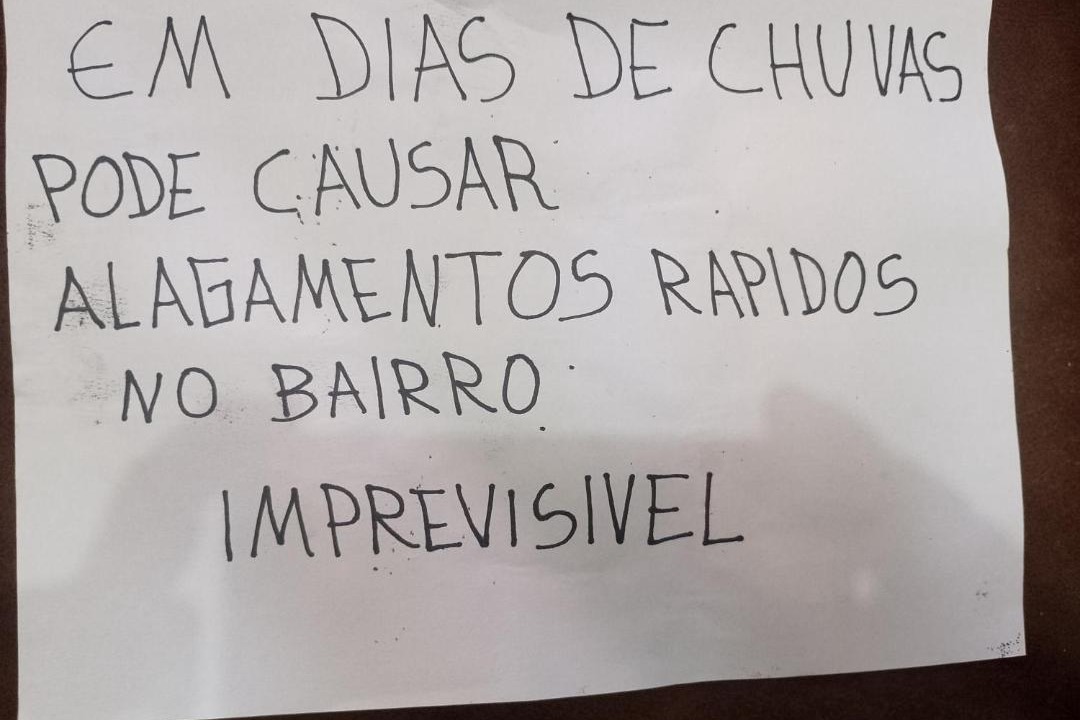 EM DIAS DE CHUVAS
PODE CAUSAR
ALAGAMENTOS RAPIDOS
NO BAIRRO.
IMPREVISIVEL